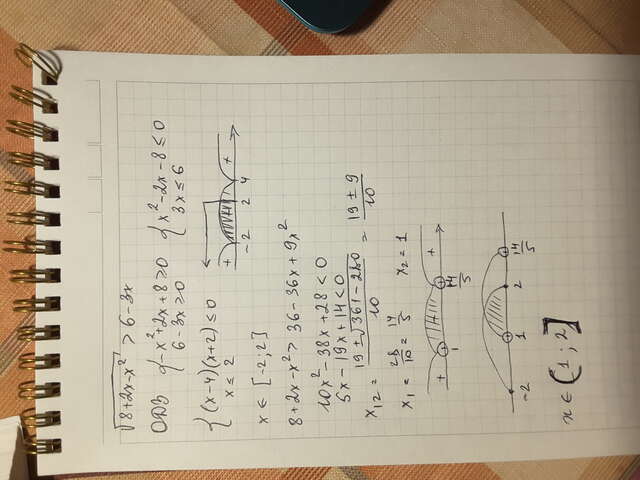 √8+2x-x² > 6-3x
ОДЗ { -x²+2x+8≥0
6-3x≥0
{ x²-2x-8≤0
3x≤6
{ (x-4)(x+2)≤0
x≤2
+ -2 2 4 +
x∈[-2;2]
8+2x-x²>36-36x+9x²
10x²-38x+28<0
5x-19x+14<0
x₁₂= 19±√361-280 / 10 = 19±9 / 10
x₁= 28/10 = 14/5 x₂=1
+ 1 14/5 +
-2 1 2 14/5
x∈(1;2]